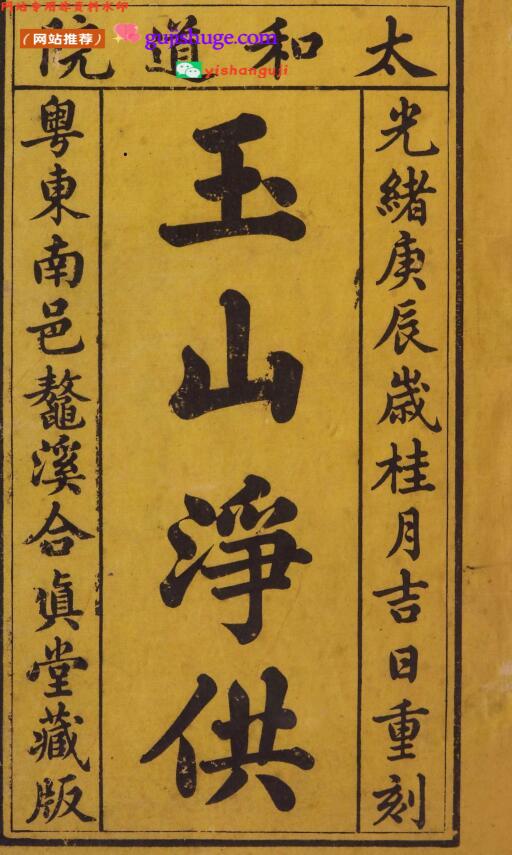 网站专用非资料水印
(网站推荐)
gujishuge.com
yishanguji
太和道院
光緒庚辰歲桂月吉日重刻
玉山淨供
粤東南邑鼇溪合眞堂藏版